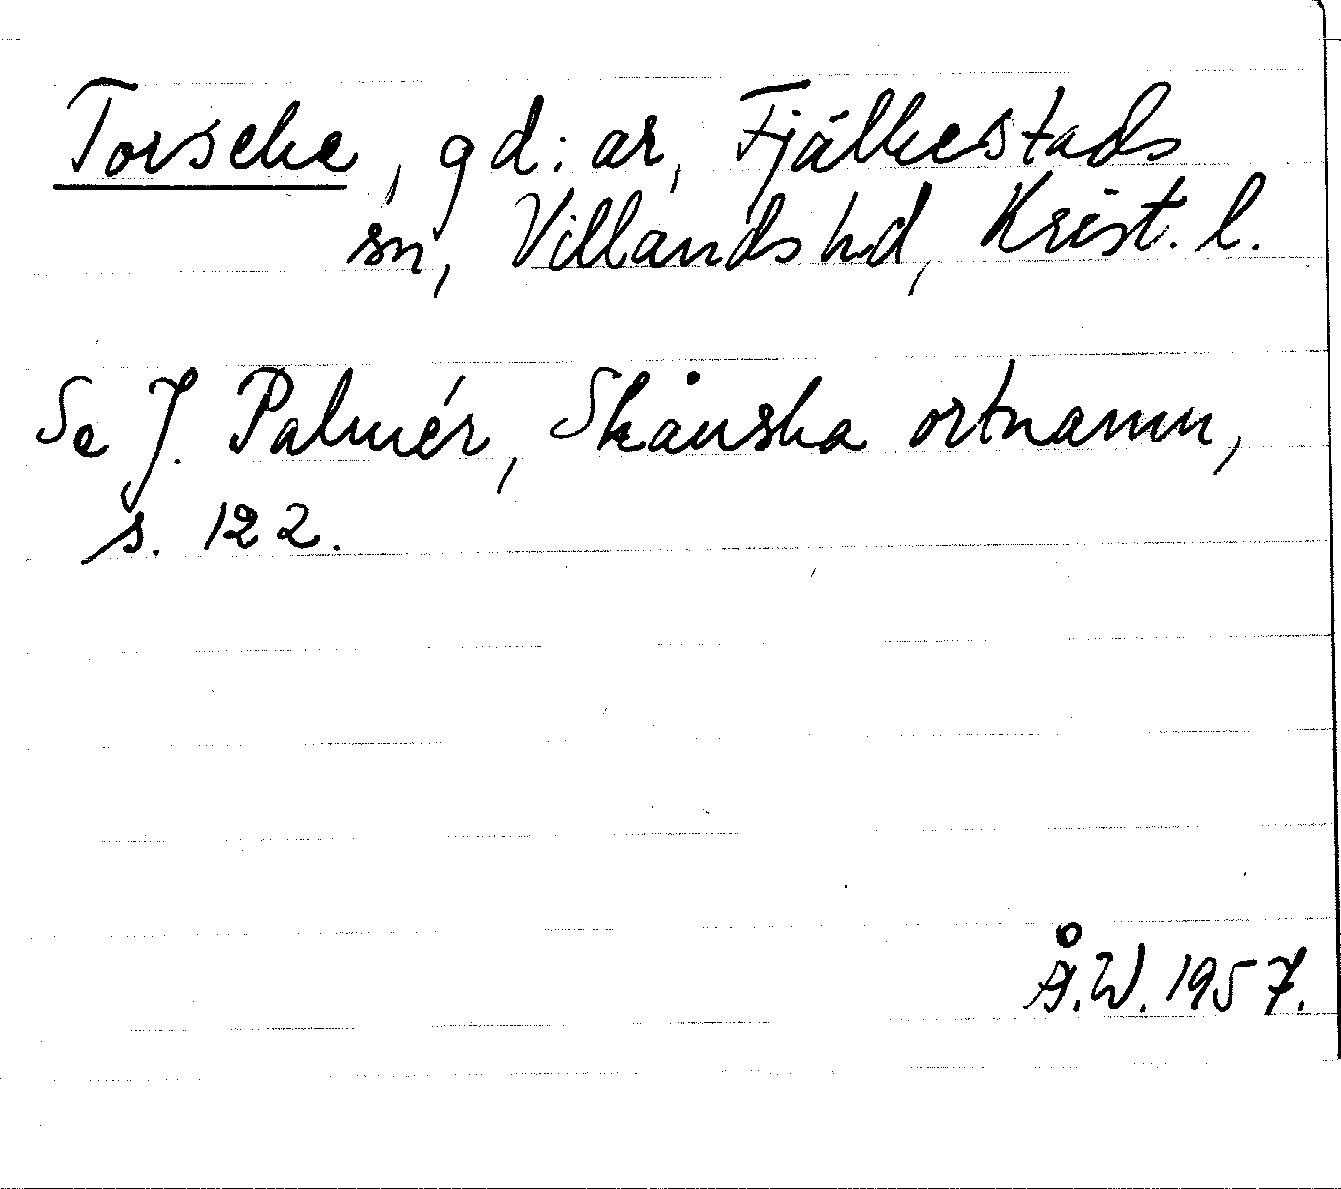 Torseke, gd:ar, Fjälkestads
sn, Villands hd, Krist. l.
Se J. Palmér, Skånska ortnamn,
s. 122.
Å.W. 1957.